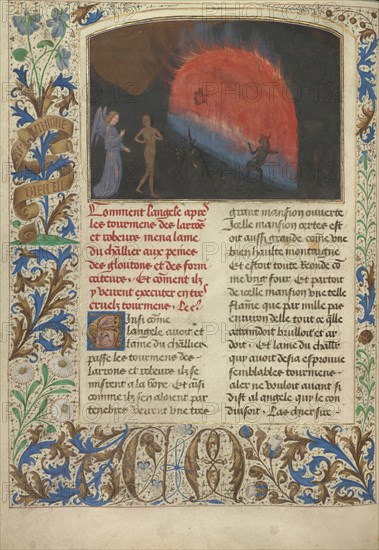 Comment langele apres
les tourmens des larrons
et robeurs mena lame
du challier aux peines
des gloutons et des forni
cateurs. Et coment il
y veirent executer
cruelz tourmens. Le
Ainsi come
langele auoit et
lame du challier
passe les tourmens des
larrons et robeurs ilz se
mistrent a la voye. Et ainsi
comme ilz sen aloient par
tenebres veirent une tres
grant mansion ouuerte
Icelle mansion certes est
oit aussi grande come une
bien haulte montaigne
Et estoit toute Ronde co
me ung four. Et partoit
de icelle mansion une telle
flame que par mille pas
enuiron delle tout ce quelle
attaindoit brulloit et ar
doit. Et lame du challier
qui auoit desia esprouue
semblables tourmens
aler ne vouloit auant si
dist al angele qui le con
duisoit. Las chier sire
CM
PHOTO12